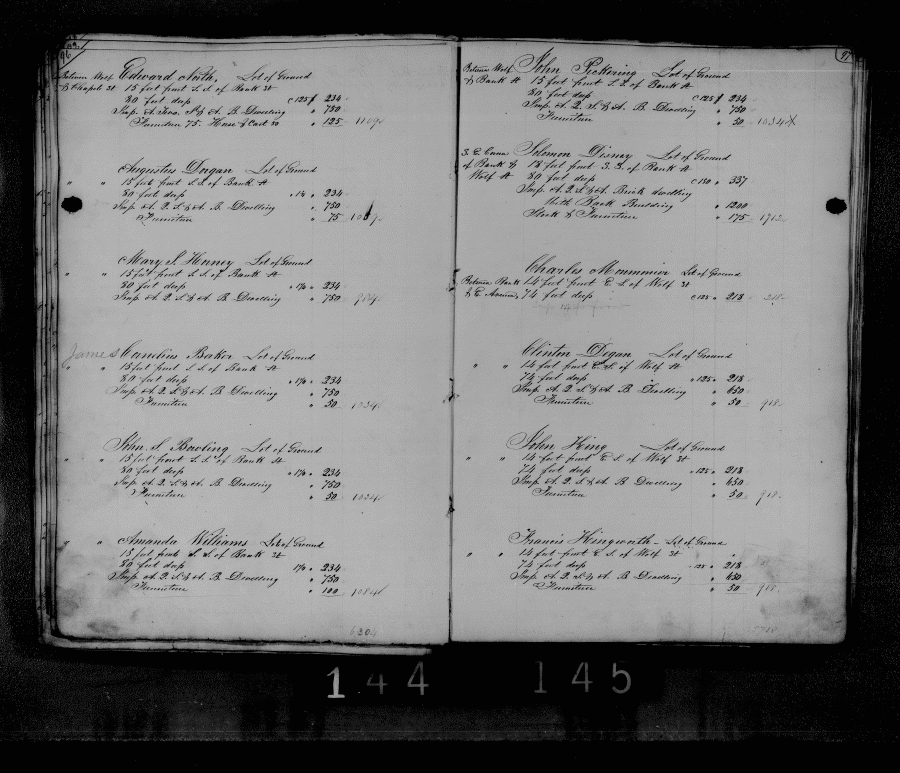 96
Between Wolf Edward North, Lot of Ground
& Chapel St 15 feet front S. S. of Bank St
80 feet deep c 125 f 234
Imp A Two S & A. B. Dwelling " 750
Furniture 75. Horse & Cart 50 " 125 1109
Augustus Dogan Lot of Ground
" " 15 feet front S. S. of Bank St
80 feet deep " 234
Imp A. 2. S. & A. B. Dwelling " 750
Furniture " 75
Mary J. Lot of Ground
" " 15 feet front S. S. of Bank St
80 feet deep " 234
Imp A. 2 S & A. B Dwelling " 750 984
James Baker Lot of Ground
" " 15 feet front S. S. of Bank St
80 feet deep " 234
Imp A. 2. S & A. B. Dwelling " 750
Furniture " 50 1034
John S. Bowling Lot of Ground
" " 15 feet front S. S. of Bank St
80 feet deep " 234
Imp A. 2 S. & A. B. Dwelling " 750
Furniture " 50 1034
Amanda Williams Lot of Ground
" " 15 feet front S. S. of Bank St
80 feet deep " 234
Imp A. 2. S. & A. B Dwelling " 750
Furniture " 100 1084
97
Between Wolf John Pickering Lot of Ground
& Bank St 15 feet front S. S. of Bank St
80 feet deep c 125 f 234
Imp A. 2. S. & A. B Dwelling " 750
Furniture " 50 1034
S. E. Corner Solomon Disney Lot of Ground
of Bank & 18 feet front S. S. of Bank St
Wolf St 80 feet deep c 150 " 337
Imp A. 2 S & A. Brick dwelling
With Back Building " 1200
Stock & Furniture " 175 1712
Charles Lot of Ground
Between Bank 14 feet front E S of Wolf St
& E Avenue, 74 feet deep c 125 " 218 218
Clinton Dogan Lot of Ground
" " 14 feet front E. S. of Wolf St
74 feet deep " 125 " 218
Imp A. 2 S & A B Dwelling " 650
Furniture " 50 918
John King Lot of Ground
" " 14 feet front E S. of Wolf St
74 feet deep " 125 " 218
Imp A. 2 S. & A. B Dwelling " 650
Furniture " 50 918
Francis Lot of Ground
" " 14 feet front E S. of Wolf St
74 feet deep 125 " 218
Imp A. 2 S & A. B Dwelling " 650
Furniture " 50 918
144 145